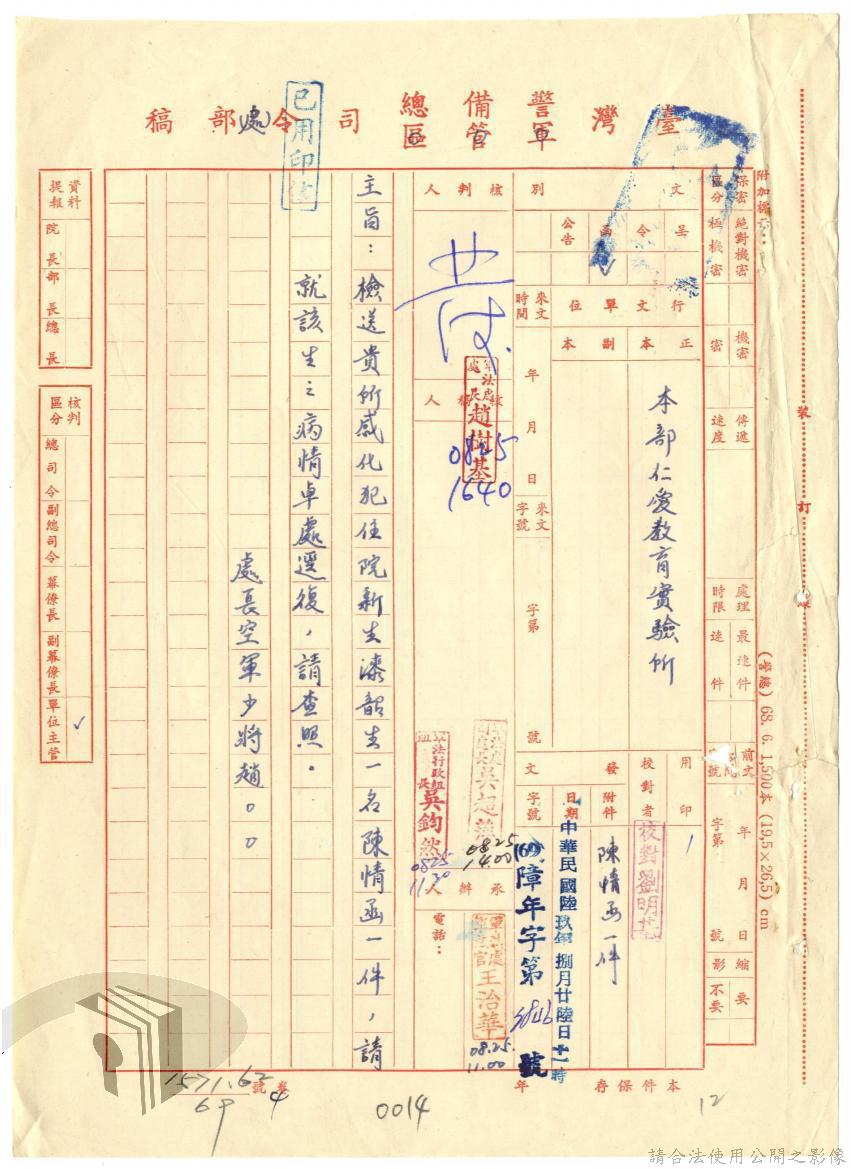 臺灣警備總司令部(處)稿
軍管區
已用印
附加標示：
保密區分
絕對機密
極機密
機密
密
傳遞速度
處理時限
最速件
速件
前文
字號
年 月 日
字第 號
縮影
要
不要
裝 訂 線
(警總) 68. 6. 1,500本 (19.5×26.5) cm
文別
呈
令
函
公告
行文單位
正本
副本
本部仁愛教育實驗所
來文時間
年 月 日
來文字號
字第 號
用印
校對者
校對劉明
發文
附件
陳情函一件
日期
中華民國陸玖年捌月廿陸日十一時
字號
(69)障年字第 3846 號
核判人
軍法處處長趙樹基
0825
1640
核稿人
軍法行政組組長吳鈞然
0825
11.30
吳超
0825
14.00
承辦人
王治華
08.25.
11.00
電話：
主旨：檢送貴所感化犯住院新生漆韶生一名陳情函一件，請
就該生之病情卓處逕復，請查照。
處長空軍少將趙○○
資料提報
院長
部長
總長
核判區分
總司令
副總司令
幕僚長
副幕僚長
單位主管
✓
本件保存 年
卷號
1571.62
69
4
0014
12
請合法使用公開之影像